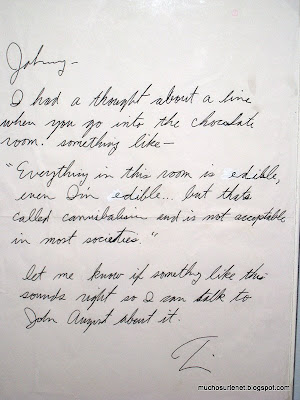 Johnny—
I had a thought about a line
when you go into the chocolate
room. something like—
"Everything in this room is edible,
even I'm edible... but thats
called cannibalism and is not acceptable
in most societies."
let me know if somethig like this
sounds right so I can talk to
John August about it.
T.
muchosurlenet.blogspot.com